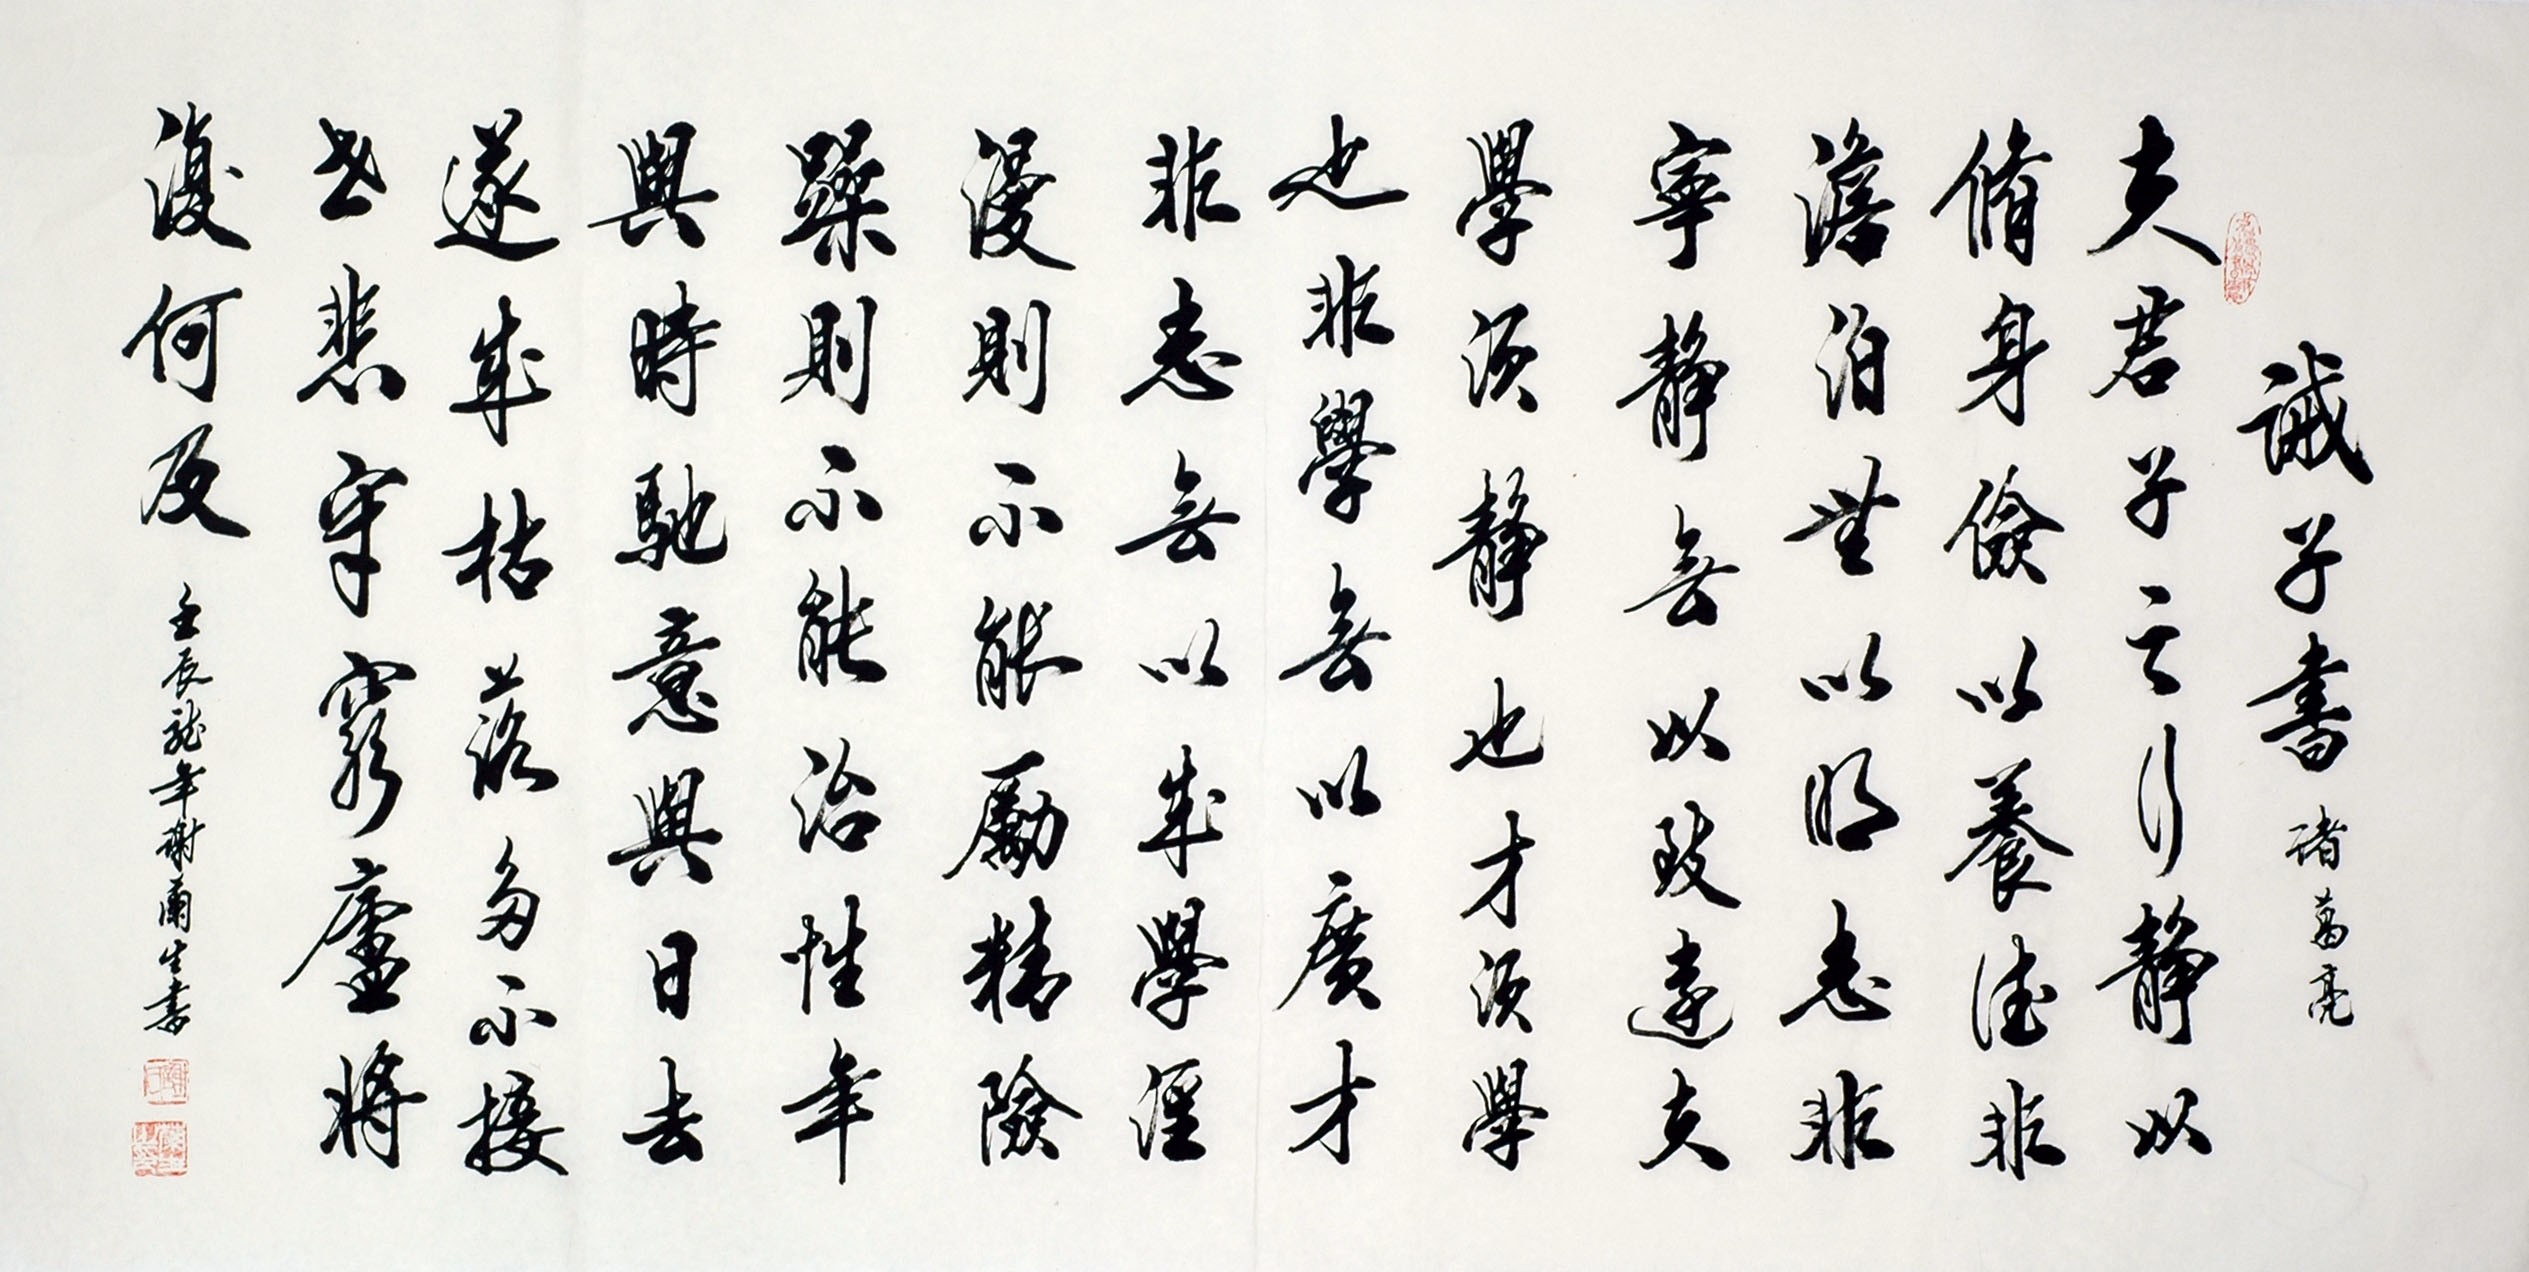 誡子書 諸葛亮
夫君子之行靜以
脩身儉以養德非
澹泊無以明志非
寧靜無以致遠夫
學須靜也才須學
也非學無以廣才
非志無以成學淫
漫則不能勵精險
躁則不能治性年
與時馳意與日去
遂成枯落多不接
世悲守窮廬將
復何及
壬辰龍年謝蘭生書